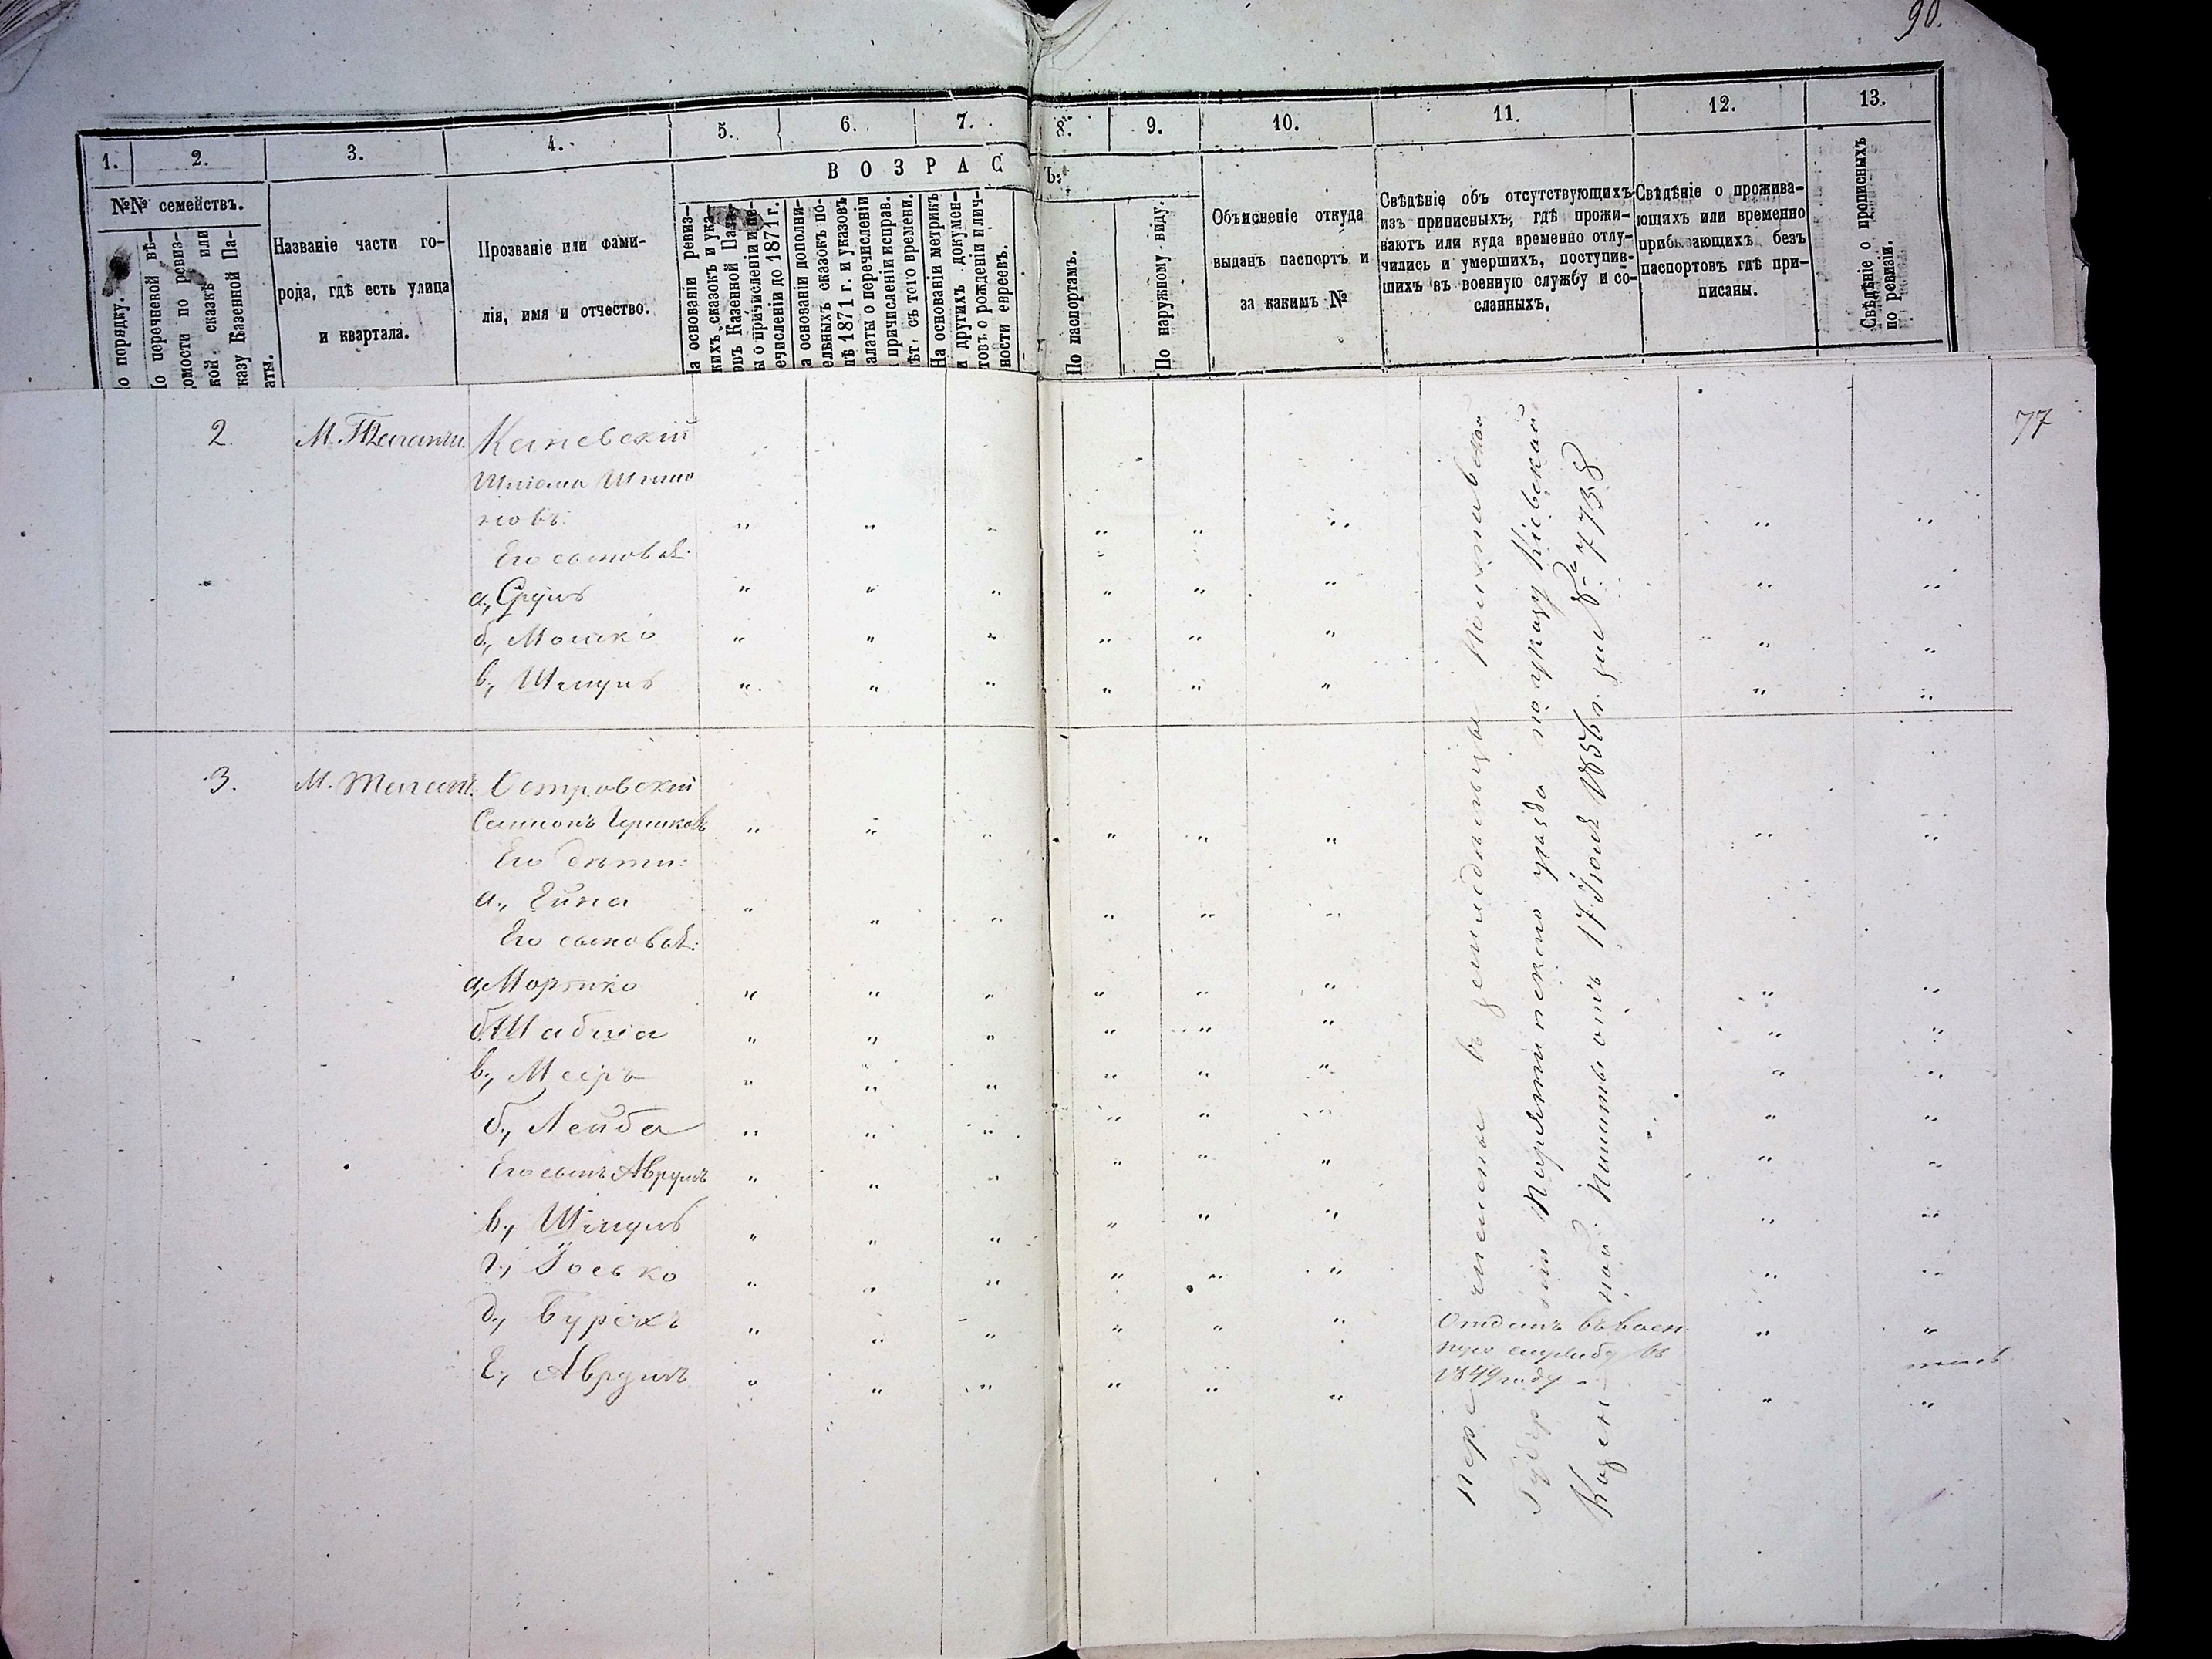 90.
1.
2.
3.
4.
5.
6.
7.
8.
9.
10.
11.
12.
13.
ВОЗРАС
Ъ:
№№ семействъ.
о порядку.
о перечневой вѣ-
омости по ревиз-
кой сказкѣ или
казу Казенной Па-
аты.
Названіе части го-
рода, гдѣ есть улица
и квартала.
Прозваніе или фами-
лія, имя и отчество.
а основаніи ревиз-
кихъ сказокъ и ука-
овъ Казенной Пала-
ы о причисленіи и пе-
ечисленіи до 1871 г.
а основаніи дополни-
ельныхъ сказокъ по-
лѣ 1871 г. и указовъ
алаты о перечисленіи
причисленіи исправ.
ѣт. съ того времени.
На основаніи метрикъ
и другихъ докумен-
товъ о рожденіи и лич-
ности евреевъ.
По паспортамъ.
По наружному виду.
Объясненіе откуда
выданъ паспортъ и
за какимъ №
Свѣдѣніе объ отсутствующихъ
изъ приписныхъ, гдѣ прожи-
ваютъ или куда временно отлу-
чились и умершихъ, поступив-
шихъ въ военную службу и со-
сланныхъ.
Свѣдѣніе о прожива-
ющихъ или временно
прибывающихъ безъ
паспортовъ гдѣ при-
писаны.
Свѣдѣніе о прописныхъ
по ревизіи.
77
2. М. Каневскій
Шліома
новъ
Его сыновья:
а., Сруль
б., Мошко
в., Шмуль
3. М. Островскій
Самсонъ Гершковъ
Его дѣти:
а.,
Его сыновья:
а., Мортко
б., Шабша
в., Мееръ
б., Лейба
Его сынъ Аврумъ
в., Шмуль
г., Іосько
д., Бурехъ
е., Аврумъ
Отданъ въ воен
ную службу въ
1849 году
перечислены въ земледѣльцы Полтавской
Губерніи Пирятинскаго уѣзда по указу Кіевской
Казенной Палаты отъ 17 Іюля 1856 г. за № 7738